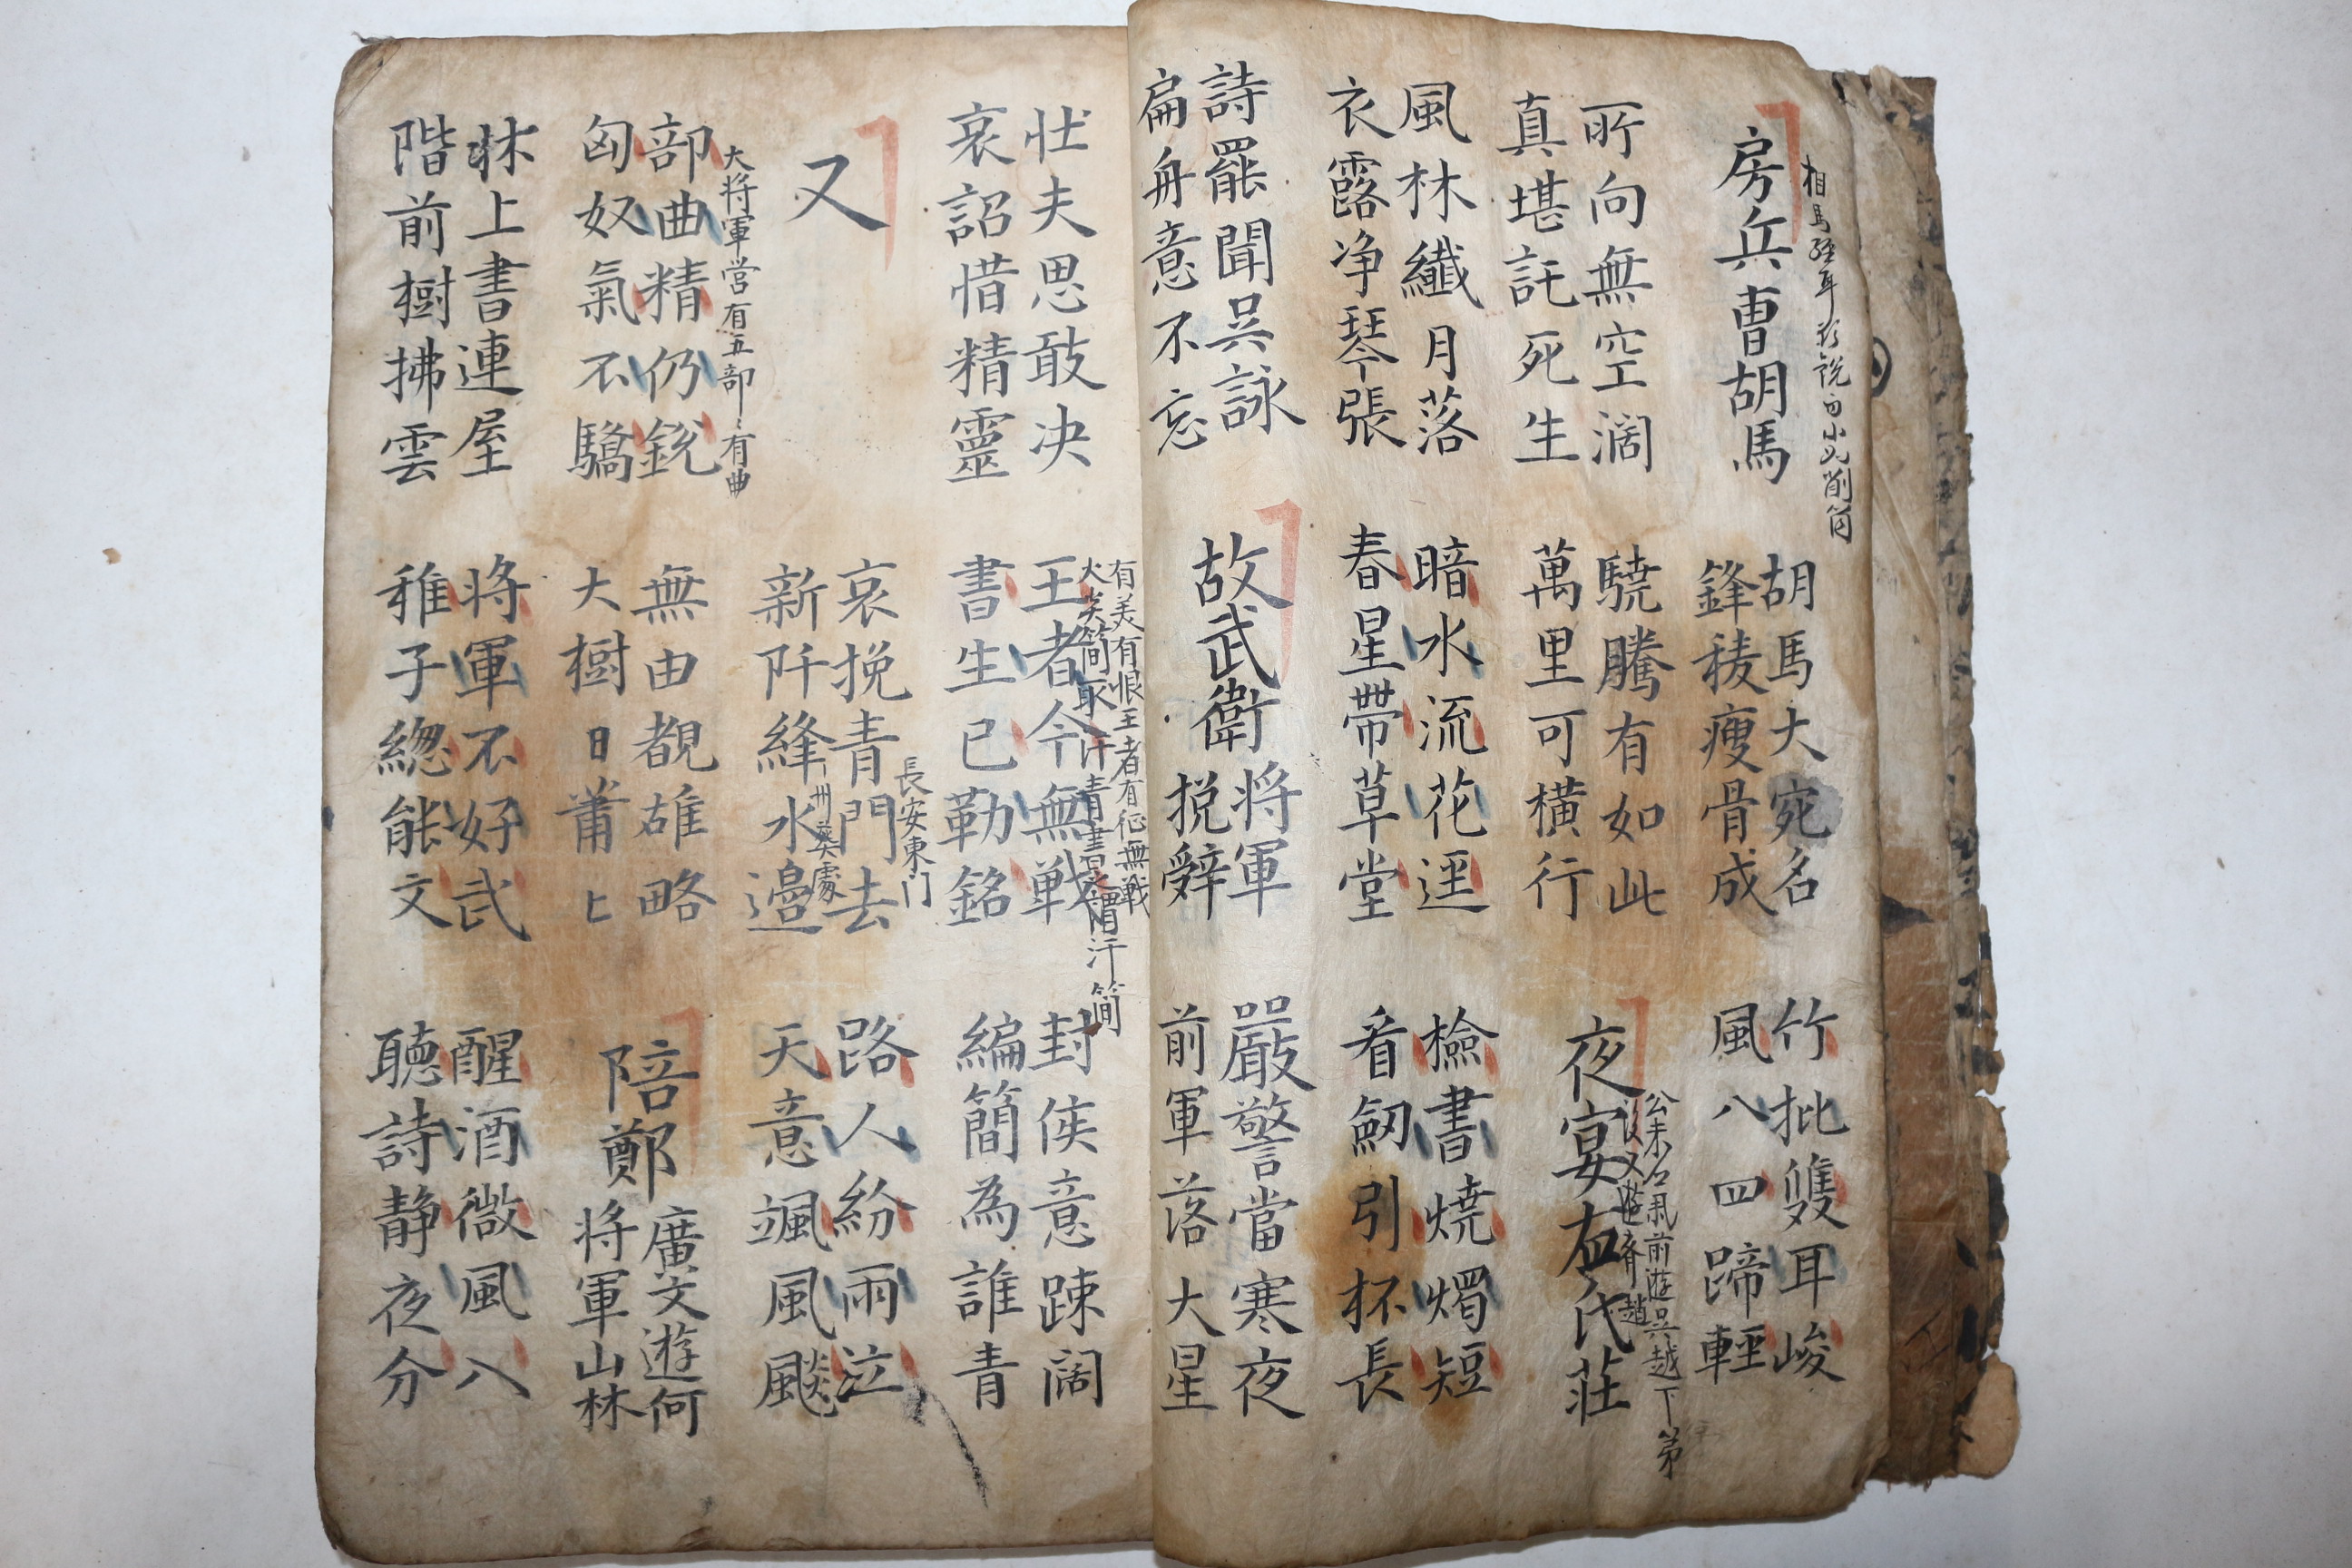 房兵曹胡馬
胡馬大宛名
鋒稜瘦骨成
竹批雙耳峻
風八四蹄輕
所向無空濶
真堪託死生
驍騰有如此
萬里可橫行
夜宴左氏莊
前遊吳越下第
又遊齊趙
風林纖月落
衣露净琴張
暗水流花逕
春星帶草堂
檢書燒燭短
看劒引杯長
詩罷聞吳詠
扁舟意不忘
故武衛
将軍
挽辭
嚴警當寒夜
前軍落大星
壮夫思敢决
哀詔惜精靈
有美有恨王者有征無戦
王者今無戦
書生已勒銘
封侯意踈闊
編簡為誰青
又
長安東门
哀挽青門去
新阡絳水邉
路人紛雨泣
天意颯風飇
大将軍营有五部部有曲
部曲精仍銳
匈奴氣不驕
無由覩雄略
大樹日蕭
陪鄭
廣文遊何
将軍山林
牀上書連屋
階前樹拂雲
将軍不好武
稚子總能文
醒酒微風入
聽詩静夜分